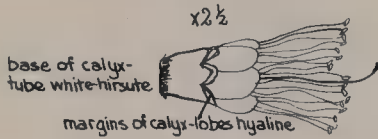 x2½
base of calyx-
tube white-hirsute
margins of calyx-lobes hyaline